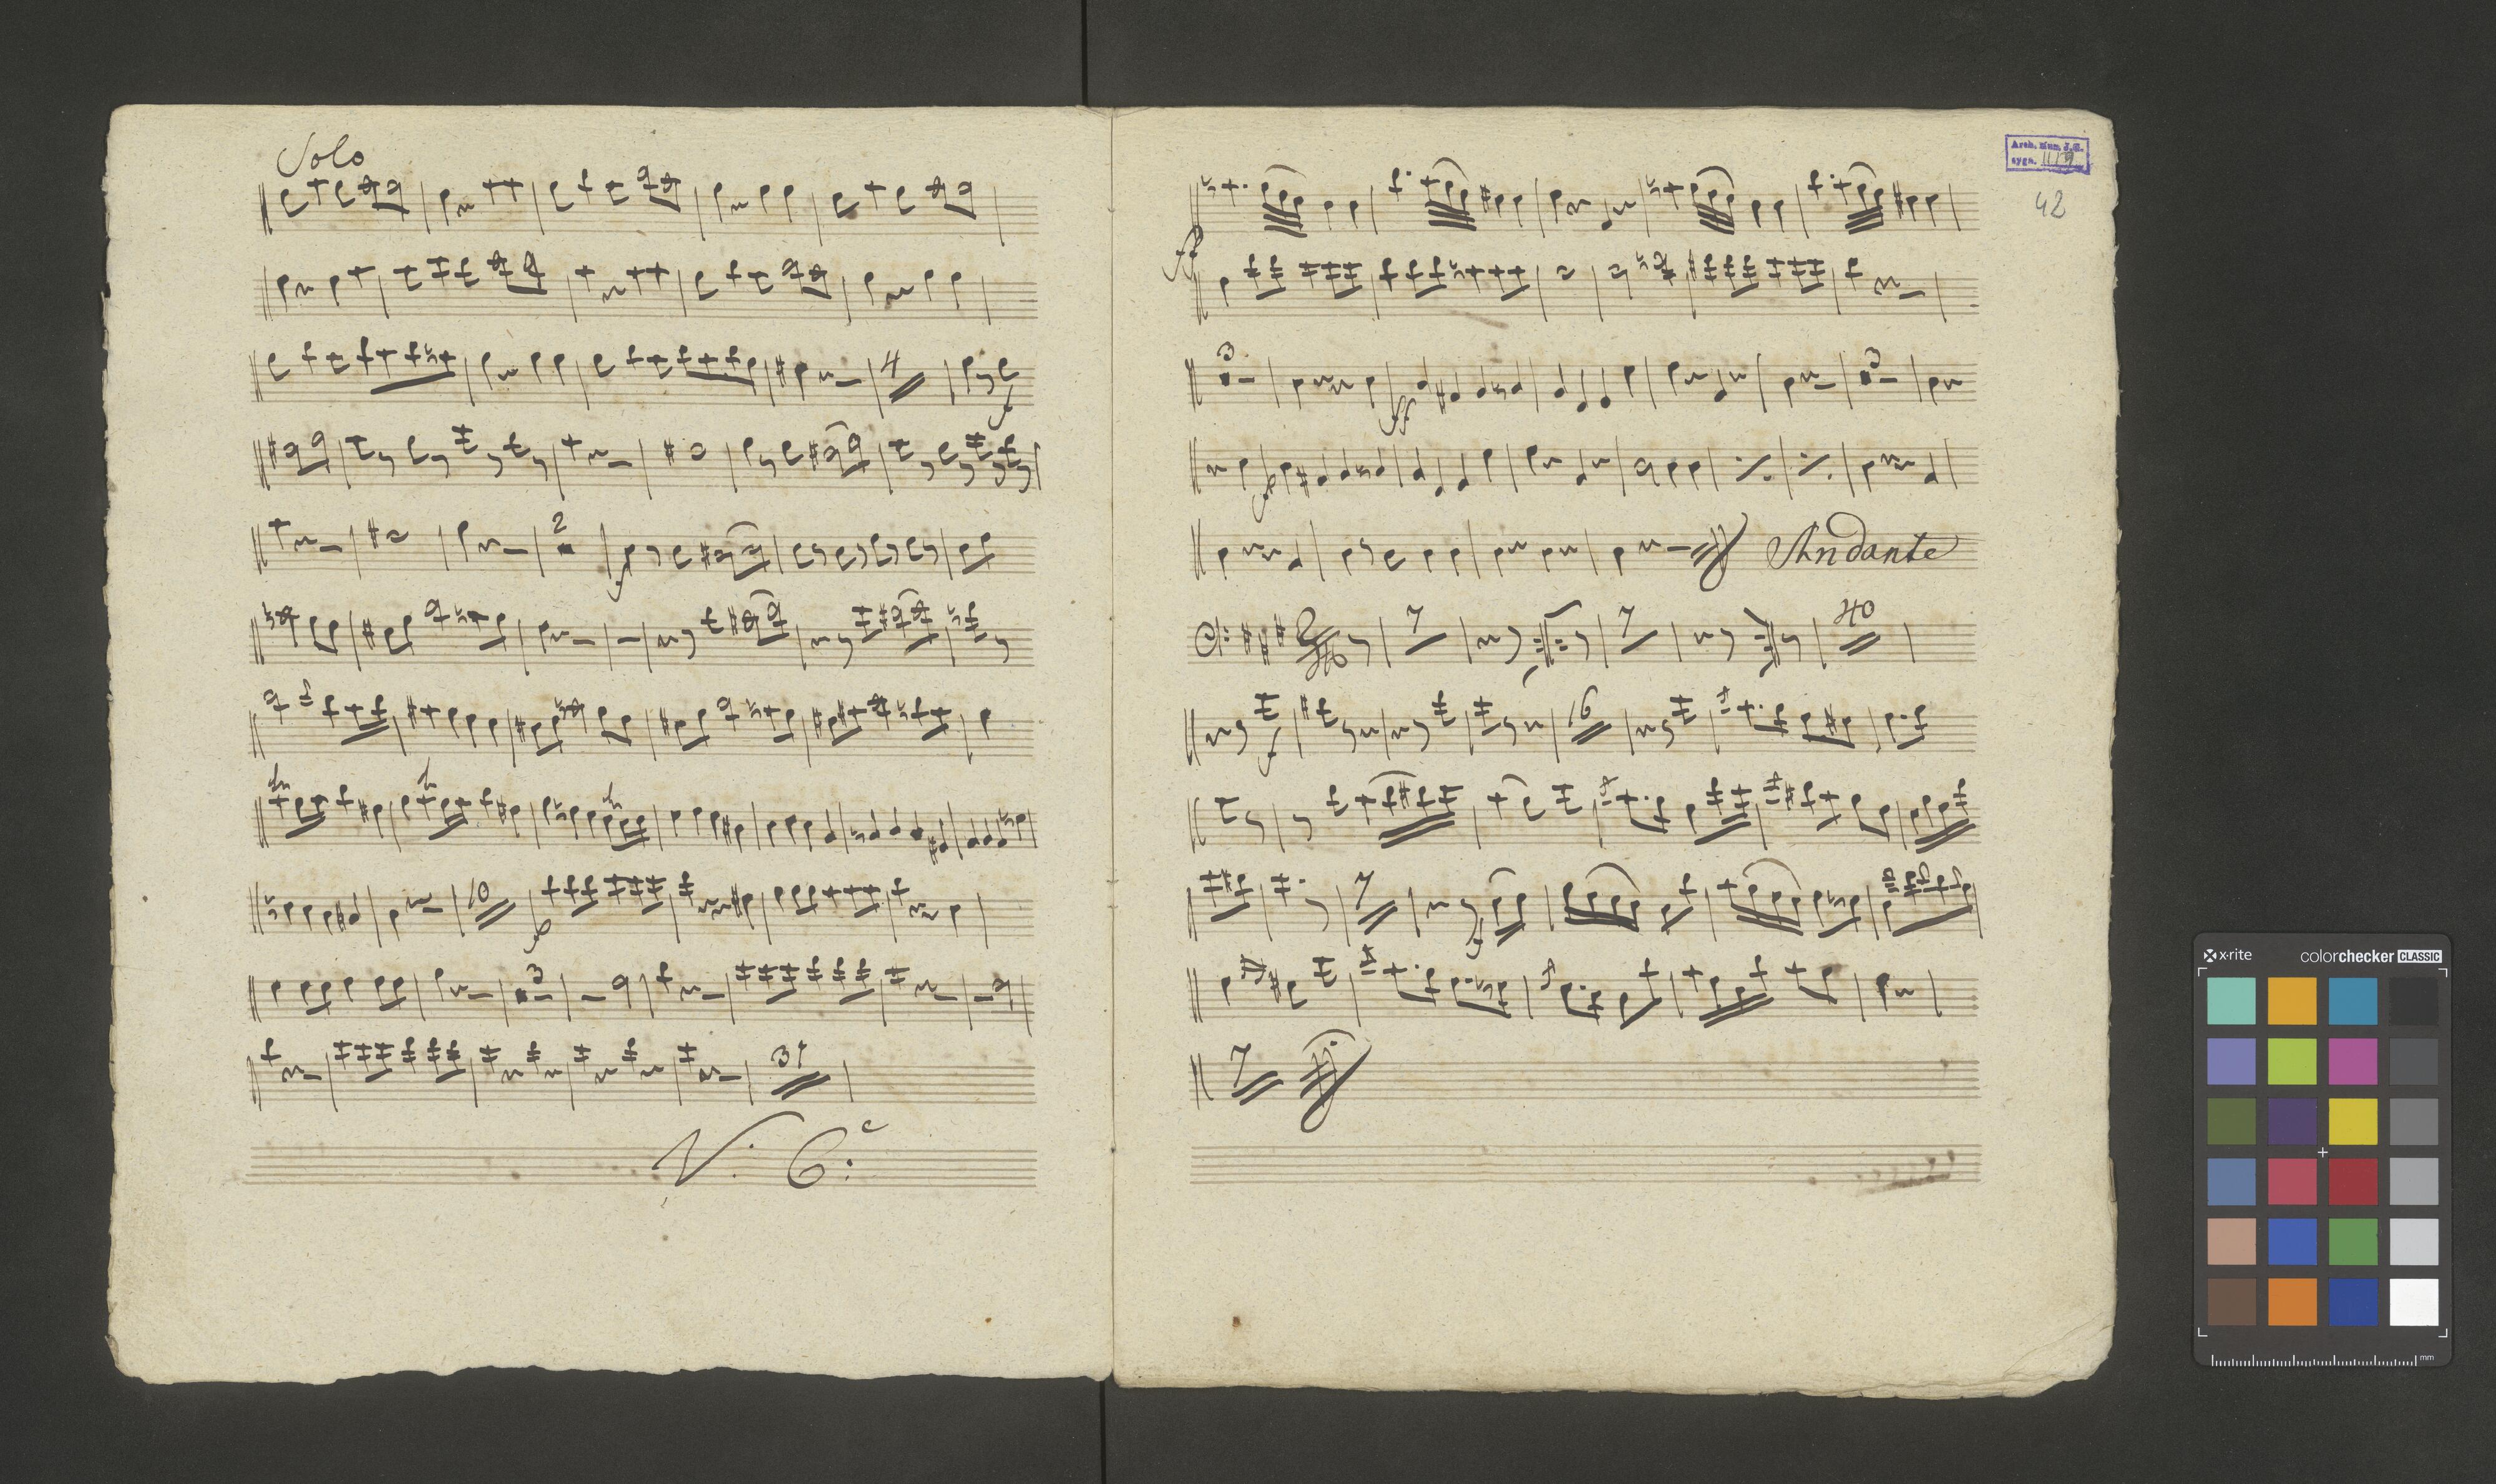 Solo
4
2
10
3
31
V. C:
Arch. Mus. J.G.
sygn.
42
3
3
Andante
7
7
40
16
7
7
x-rite
colorchecker CLASSIC
mm